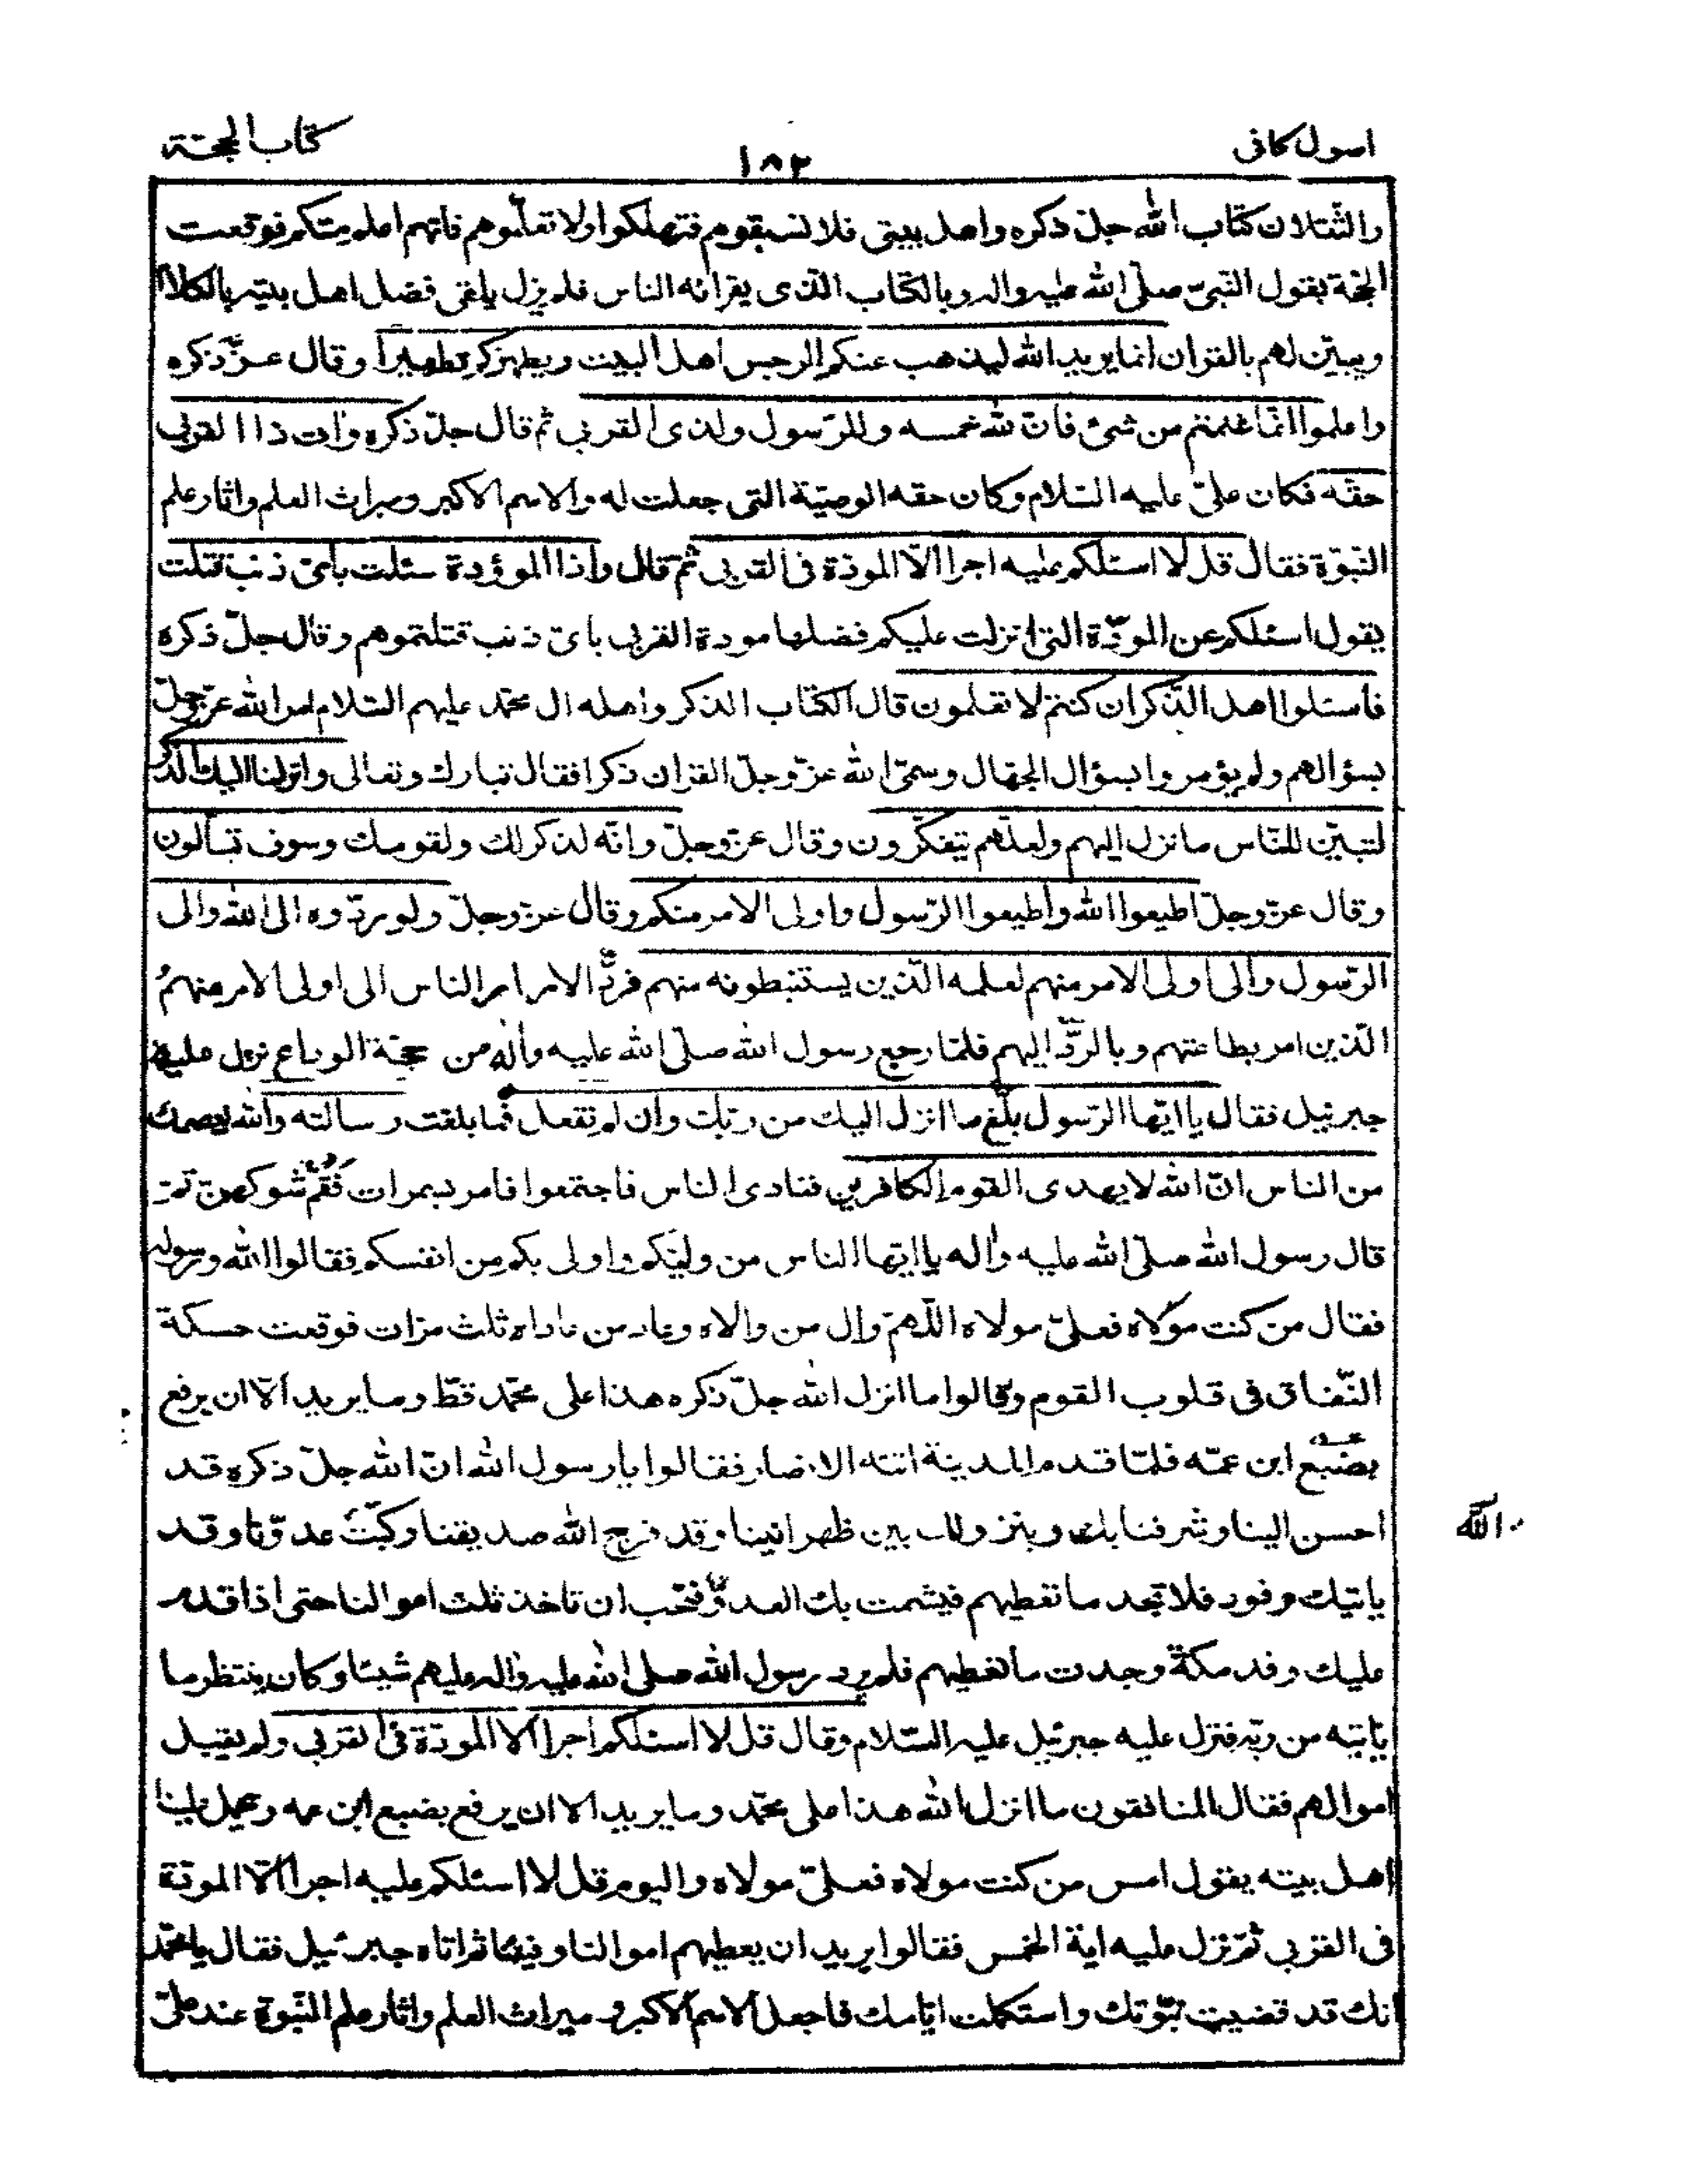 اصول كافى
١٨٢
كتاب الحجّة
والثّقلان كتاب الله جلّ ذكره واهل بيتى فلا تسبقوهم فتهلكوا ولا تعلّموهم فانّهم اعلم منكم فوقعت
الحجّة بقول النّبىّ صلّى الله عليه واله وبالكتاب الّذى يقرائه الناس فلم يزل يلقى فضل اهل بيته بالكلام
ويبيّن لهم بالقران انما يريد الله ليذهب عنكم الرجس اهل البيت ويطهركم تطهيراً وقال عزّ ذكره
واعلموا انّما غنمتم من شئ فانّ لله خمسه وللرّسول ولذى القربى ثم قال جلّ ذكره وات ذا القربى
حقّه فكان علىّ عليه السّلام وكان حقه الوصيّة التى جعلت له والاسم الاكبر وميراث العلم واثار علم
النّبوّة فقال قل لا اسئلكم عليه اجرا الّا المودّة فى القربى ثمّ قال واذا الموؤدة سئلت بأىّ ذنب قتلت
يقول اسئلكم عن المودّة التى انزلت عليكم فضلها مودة القربى باىّ ذنب قتلتموهم وقال جلّ ذكره
فاسئلوا اهل الذّكر ان كنتم لا تعلمون قال الكتاب الذكر واهله ال محمّد عليهم السّلام امر الله عزّ وجلّ
بسؤالهم ولم يؤمروا بسؤال الجهّال وسمّى الله عزّ وجلّ القران ذكرا فقال تبارك وتعالى وانزلنا اليك الذكر
لتبيّن للنّاس ما نزل اليهم ولعلّهم يتفكّرون وقال عزّ وجلّ وانّه لذكر لك ولقومك وسوف تسألون
وقال عزّ وجلّ اطيعوا الله وأطيعوا الرّسول واولى الامر منكم وقال عزّ وجلّ ولو ردّوه الى الله والى
الرّسول والى اولى الامر منهم لعلمه الّذين يستنبطونه منهم فردّ الامر امر الناس الى اولى الامر منهم
الّذين امر بطاعتهم وبالرّدّ اليهم فلمّا رجع رسول الله صلّى الله عليه واله من حجّة الوداع نزل عليه
جبرئيل فقال يا ايّها الرّسول بلّغ ما انزل اليك من ربّك وان لم تفعل فما بلغت رسالته والله يعصمك
من الناس انّ الله لا يهدى القوم الكافرين فنادى الناس فاجتمعوا فامر بسمرات فقمّ شوكهنّ ثمّ
قال رسول الله صلّى الله عليه واله يا ايّها الناس من وليّكم واولى بكم من انفسكم فقالوا الله ورسوله
فقال من كنت مولاه فعلىّ مولاه اللّهمّ وال من والاه وعاد من عاداه ثلث مرّات فوقعت حسكة
النّفاق فى قلوب القوم وقالوا ما انزل الله جلّ ذكره هذا على محمّد قطّ وما يريد الّا ان يرفع
بضبع ابن عمّه فلمّا قدم المدينة اتته الانصار فقالوا يا رسول الله انّ الله جلّ ذكره قد
احسن الينا وشرفنا بك وبنزولك بين ظهرانينا وقد فرح الله صديقنا وكبّت عدوّنا وقد
الله
ياتيك وفود فلا تجد ما تعطيهم فيشمت بك العدوّ فنحب ان تاخذ ثلث اموالنا حتى اذا قدم
عليك وفد مكة وجدت ما تعطيهم فلم يرد رسول الله صلى الله عليه واله عليهم شيئا وكان ينتظر ما
ياتيه من ربّه فنزل عليه جبرئيل عليه السّلام وقال قل لا اسئلكم اجرا الا المودّة فى القربى ولم يقبل
اموالهم فقال المنافقون ما انزل الله هذا على محمّد وما يريد الا ان يرفع بضبع ابن عمه ويحمل علينا
اهل بيته يقول امس من كنت مولاه فعلىّ مولاه واليوم قل لا اسئلكم عليه اجرا الّا المودّة
فى القربى ثمّ نزل عليه اية الخمس فقالوا يريد ان يعطيهم اموالنا وفيئنا ثم اتاه جبرئيل فقال يا محمّد
انك قد قضيت نبوّتك واستكملت ايّامك فاجعل الاسم الاكبر وميراث العلم واثار علم النّبوة عند علىّ